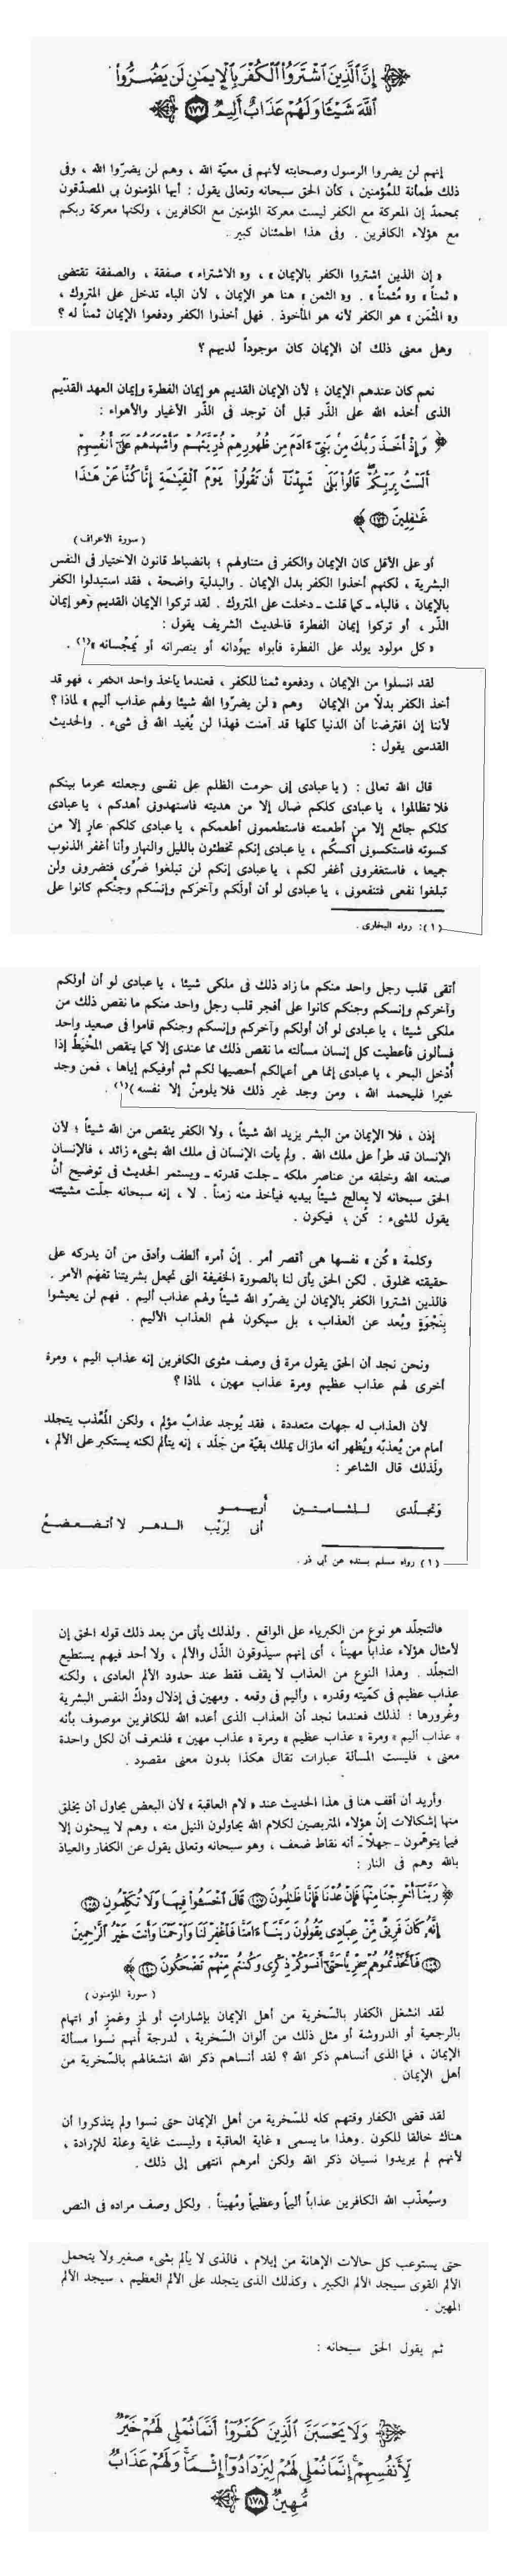 إِنَّ الَّذِينَ اشْتَرَوُا الْكُفْرَ بِالْإِيمَانِ لَن يَضُرُّوا
اللَّهَ شَيْئًا وَلَهُمْ عَذَابٌ أَلِيمٌ ١٧٧
إنهم لن يضروا الرسول وصحابته لأنهم فى معيّة الله ، وهم لن يضرّوا الله ، وفى
ذلك طمأنة للمؤمنين ، كأن الحق سبحانه وتعالى يقول : أيها المؤمنون بى المصدّقون
بمحمد إن المعركة مع الكفر ليست معركة المؤمنين مع الكافرين ، ولكنها معركة ربكم
مع هؤلاء الكافرين . وفى هذا اطمئنان كبير .
« إن الذين اشتروا الكفر بالإيمان » ، و« الاشتراء » صفقة ، والصفقة تقتضى
« ثمناً » و« مُثمناً » . و« الثمن » هنا هو الإيمان ، لأن الباء تدخل على المتروك ،
و« المثْمَن » هو الكفر لأنه هو المأخوذ . فهل أخذوا الكفر ودفعوا الإيمان ثمناً له ؟
وهل معنى ذلك أن الإيمان كان موجوداً لديهم ؟
نعم كان عندهم الإيمان ؛ لأن الإيمان القديم هو إيمان الفطرة وإيمان العهد القديم
الذى أخذه الله على الذّر قبل أن توجد فى الذّر الأغيار والأهواء :
﴿ وَإِذْ أَخَذَ رَبُّكَ مِنۢ بَنِىٓ ءَادَمَ مِن ظُهُورِهِمْ ذُرِّيَّتَهُمْ وَأَشْهَدَهُمْ عَلَىٰٓ أَنفُسِهِمْ
أَلَسْتُ بِرَبِّكُمْ ۖ قَالُوا۟ بَلَىٰ شَهِدْنَآ أَن تَقُولُوا۟ يَوْمَ ٱلْقِيَـٰمَةِ إِنَّا كُنَّا عَنْ هَـٰذَا
غَـٰفِلِينَ ١٧٢ ﴾
( سورة الاعراف )
أو على الأقل كان الإيمان والكفر فى متناولهم ؛ بانضباط قانون الاختيار فى النفس
البشرية ، لكنهم أخذوا الكفر بدل الإيمان . والبدلية واضحة ، فقد استبدلوا الكفر
بالإيمان ، فالباء - كما قلت - دخلت على المتروك . لقد تركوا الإيمان القديم وهو إيمان
الذّر ، أو تركوا إيمان الفطرة فالحديث الشريف يقول :
« كل مولود يولد على الفطرة فأبواه يهوّدانه أو ينصرانه أو يمجسانه »(١) .
لقد انسلوا من الإيمان ، ودفعوه ثمنا للكفر ، فعندما يأخذ واحد الكفر ، فهو قد
أخذ الكفر بدلاً من الإيمان وهم « لن يضرّوا الله شيئا ولهم عذاب أليم » لماذا ؟
لأننا إن افترضنا أن الدنيا كلها قد آمنت فهذا لن يُفيد الله فى شىء . والحديث
القدسى يقول :
قال الله تعالى : ( يا عبادى إنى حرمت الظلم على نفسى وجعلته محرما بينكم
فلا تظالموا ، يا عبادى كلكم ضال إلا من هديته فاستهدونى أهدكم ، يا عبادى
كلكم جائع إلا من أطعمته فاستطعمونى أطعمكم ، يا عبادى كلكم عار إلا من
كسوته فاستكسونى أكسكم ، يا عبادى إنكم تخطئون بالليل والنهار وأنا أغفر الذنوب
جميعا ، فاستغفرونى أغفر لكم ، يا عبادى إنكم لن تبلغوا ضُرّى فتضرونى ولن
تبلغوا نفعى فتنفعونى ، يا عبادى لو أن أولكم وآخركم وإنسكم وجنّكم كانوا على
(١) : رواه البخارى .
أتقى قلب رجل واحد منكم ما زاد ذلك فى ملكى شيئا ، يا عبادى لو أن أولكم
وآخركم وإنسكم وجنكم كانوا على أفجر قلب رجل واحد منكم ما نقص ذلك من
ملكى شيئا ، يا عبادى لو أن أولكم وآخركم وإنسكم وجنكم قاموا فى صعيد واحد
فسألونى فأعطيت كل إنسان مسألته ما نقص ذلك مما عندى إلا كما ينقص المِخْيَطُ إذا
أُدْخل البحر ، يا عبادى إنما هى أعمالكم أحصيها لكم ثم أوفيكم إياها ، فمن وجد
خيرا فليحمد الله ، ومن وجد غير ذلك فلا يلومنّ إلا نفسه )(١) .
إذن ، فلا الإيمان من البشر يزيد الله شيئاً ، ولا الكفر ينقص من الله شيئاً ؛ لأن
الإنسان قد طرأ على ملك الله . ولم يأت الإنسان فى ملك الله بشىء زائد ، فالإنسان
صنعه الله وخلقه من عناصر ملكه - جلت قدرته - ويستمر الحديث فى توضيح أنّ
الحق سبحانه لا يعالج شيئاً بيديه فيأخذ منه زمناً . لا ، إنه سبحانه جلّت مشيئته
يقول للشىء : كُن ؛ فيكون .
وكلمة « كُن » نفسها هى أقصر أمر . إنّ أمره ألطف وأدق من أن يدركه على
حقيقته مخلوق . لكن الحق يأتى لنا بالصورة الخفيفة التى تجعل بشريتنا تفهم الأمر .
فالذين اشتروا الكفر بالإيمان لن يضرّو الله شيئاً ولهم عذاب أليم . فهم لن يعيشوا
بِنَجْوَةٍ وبُعد عن العذاب ، بل سيكون لهم العذاب الأليم .
ونحن نجد أن الحق يقول مرة فى وصف مثوى الكافرين إنه عذاب اليم ، ومرة
أخرى لهم عذاب عظيم ومرة عذاب مهين ، لماذا ؟
لأن العذاب له جهات متعددة ، فقد يُوجد عذابٌ مؤلم ، ولكن المُعَّذب يتجلد
أمام من يُعذبّه ويُظهر أنه مازال يملك بقيّة من جَلَد ، إنه يتألم لكنه يستكبر على الألم ،
ولذلك قال الشاعر :
وَتجلّدى للشامتين أُريهمو
أنى لِرَيْب الدهر لا أتضعضعُ
(١) رواه مسلم بسنده عن أبى ذر .
فالتجلّد هو نوع من الكبرياء على الواقع . ولذلك يأتى من بعد ذلك قوله الحق إن
لأمثال هؤلاء عذاباً مهيناً ، أى إنهم سيذوقون الذّل والألم ، ولا أحد فيهم يستطيع
التجلّد . وهذا النوع من العذاب لا يقف فقط عند حدود الألم العادى ، ولكنه
عذاب عظيم فى كمّيته وقدره ، وأليم فى وقعه . ومهين فى إذلال ودكّ النفس البشرية
وغُرورها ؛ لذلك فعندما نجد أن العذاب الذى أعده الله للكافرين موصوف بأنه
« عذاب أليم » ومرة « عذاب عظيم » ومرة « عذاب مهين » فلنعرف أن لكل واحدة
معنى ، فليست المسألة عبارات تقال هكذا بدون معنى مقصود .
وأريد أن أقف هنا فى هذا الحديث عند « لام العاقبة » لأن البعض يحاول أن يخلق
منها إشكالات إنّ هؤلاء المتربصين لكلام الله يحاولون النيل منه ، وهم لا يبحثون إلا
فيما يتوهّمون - جهلاً - أنه نقاط ضعف ، وهو سبحانه وتعالى يقول عن الكفار والعياذ
بالله وهم فى النار :
﴿ رَبَّنَآ أَخْرِجْنَا مِنْهَا فَإِنْ عُدْنَا فَإِنَّا ظَـٰلِمُونَ ١٠٧ قَالَ ٱخْسَـُٔوا۟ فِيهَا وَلَا تُكَلِّمُونِ ١٠٨
إِنَّهُۥ كَانَ فَرِيقٌ مِّنْ عِبَادِى يَقُولُونَ رَبَّنَآ ءَامَنَّا فَٱغْفِرْ لَنَا وَٱرْحَمْنَا وَأَنتَ خَيْرُ ٱلرَّٰحِمِينَ
١٠٩ فَٱتَّخَذْتُمُوهُمْ سِخْرِيًّا حَتَّىٰٓ أَنسَوْكُمْ ذِكْرِى وَكُنتُم مِّنْهُمْ تَضْحَكُونَ ١١٠ ﴾
( سورة المؤمنون )
لقد انشغل الكفار بالسّخرية من أهل الإيمان بإشاراتٍ أو لمز وغمزٍ أو اتهام
بالرجعية أو الدروشة أو مثل ذلك من ألوان السّخرية ، لدرجة أنهم نسوا مسألة
الإيمان ، فما الذى أنساهم ذكر الله ؟ لقد أنساهم ذكر الله انشغالهم بالسّخرية من
أهل الإيمان .
لقد قضى الكفار وقتهم كله للسّخرية من أهل الإيمان حتى نسوا ولم يتذكروا أن
هناك خالقا للكون . وهذا ما يسمى « غاية العاقبة » وليست غاية وعلة للإرادة ،
لأنهم لم يريدوا نسيان ذكر الله ولكن أمرهم انتهى إلى ذلك .
وسيُعذّب الله الكافرين عذاباً أليماً وعظيماً ومُهيناً . ولكل وصف مراده فى النص
حتى يستوعب كل حالات الإهانة من إيلام ، فالذى لا يألم بشىء صغير ولا يتحمل
الألم القوى سيجد الألم الكبير ، وكذلك الذى يتجلد على الألم العظيم ، سيجد الألم
المهين .
ثم يقول الحق سبحانه :
وَلَا يَحْسَبَنَّ ٱلَّذِينَ كَفَرُوٓا۟ أَنَّمَا نُمْلِى لَهُمْ خَيْرٌ
لِّأَنفُسِهِمْ ۚ إِنَّمَا نُمْلِى لَهُمْ لِيَزْدَادُوٓا۟ إِثْمًا ۚ وَلَهُمْ عَذَابٌ
مُّهِينٌ ١٧٨